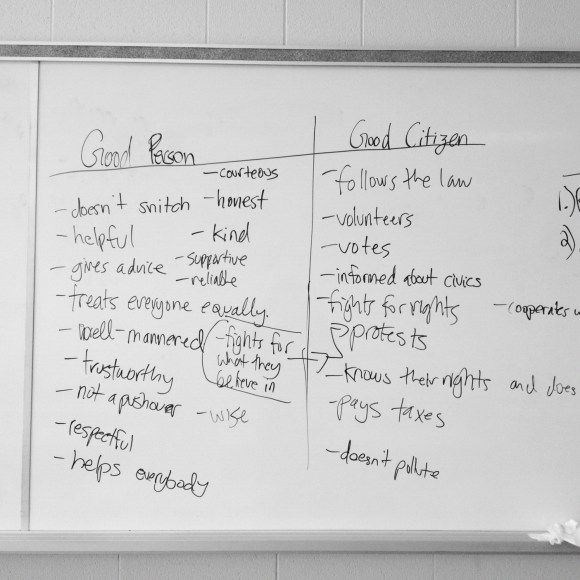 Good Person
- courteous
- doesn't snitch
- honest
- helpful
- kind
- gives advice
- supportive
- reliable
- treats everyone equally.
- well-mannered
- fights for
what they
believe in
- trustworthy
- not a pushover
- wise
- respectful
- helps everybody
Good Citizen
- follows the law
- volunteers
- votes
- informed about civics
- fights for rights
- cooperates
protests
- knows their rights and does
- pays taxes
- doesn't pollute
1.)
2)